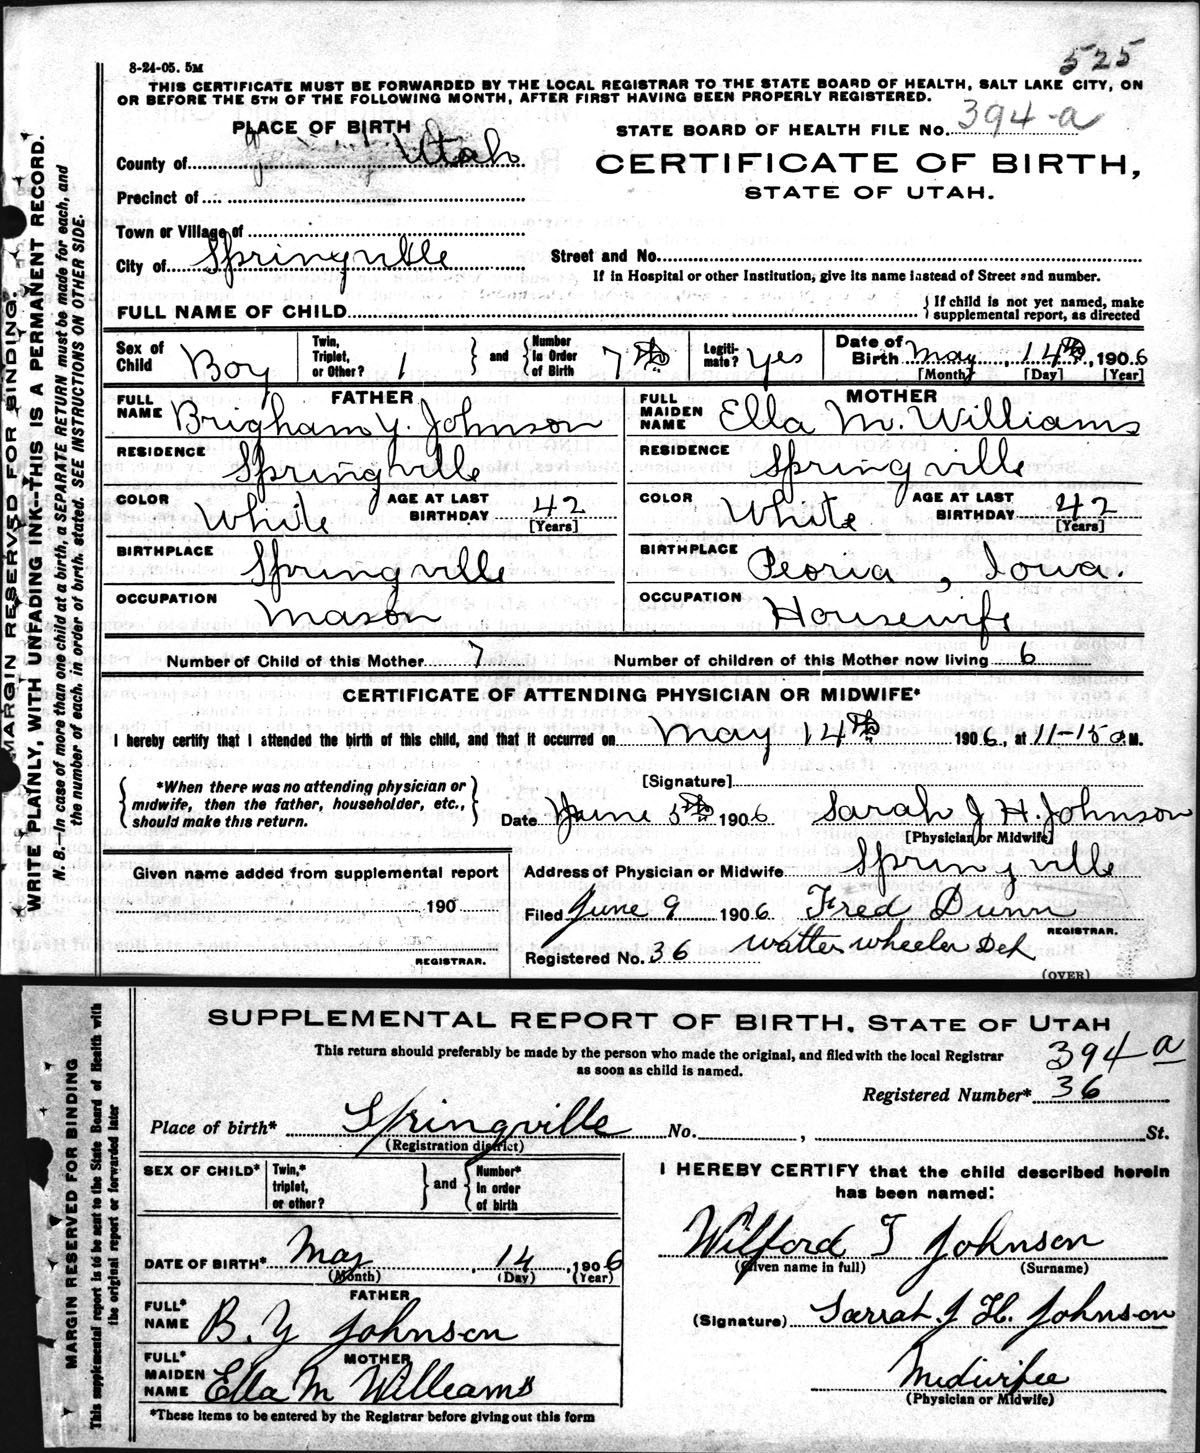 525
8-24-05. 5M
THIS CERTIFICATE MUST BE FORWARDED BY THE LOCAL REGISTRAR TO THE STATE BOARD OF HEALTH, SALT LAKE CITY, ON
OR BEFORE THE 5TH OF THE FOLLOWING MONTH, AFTER FIRST HAVING BEEN PROPERLY REGISTERED.
PLACE OF BIRTH
STATE BOARD OF HEALTH FILE No. 394-a
County of Utah
CERTIFICATE OF BIRTH,
STATE OF UTAH.
Precinct of
Town or Village of
City of Springville
Street and No.
If in Hospital or other Institution, give its name instead of Street and number.
FULL NAME OF CHILD
{ If child is not yet named, make supplemental report, as directed
Sex of Child Boy Twin, Triplet, or Other? 1 } and { Number in Order of Birth 7th Legiti-mate? yes Date of Birth May 14th, 1906
[Month] [Day] [Year]
FATHER
FULL NAME Brigham Y. Johnson
RESIDENCE Springville
COLOR White AGE AT LAST BIRTHDAY 42 [Years]
BIRTHPLACE Springville
OCCUPATION Mason
MOTHER
FULL MAIDEN NAME Ella M. Williams
RESIDENCE Springville
COLOR White AGE AT LAST BIRTHDAY 42 [Years]
BIRTHPLACE Peoria, Iowa.
OCCUPATION Housewife
Number of Child of this Mother 7 Number of children of this Mother now living 6
CERTIFICATE OF ATTENDING PHYSICIAN OR MIDWIFE*
I hereby certify that I attended the birth of this child, and that it occurred on May 14th 1906, at 11-15 a M.
{ *When there was no attending physician or midwife, then the father, householder, etc., should make this return. }
[Signature]
Date June 5th 1906 Sarah J H. Johnson
[Physician or Midwife]
Given name added from supplemental report
190
REGISTRAR.
Address of Physician or Midwife Springville
Filed June 9 1906 Fred Dunn
REGISTRAR.
Registered No. 36 Walter Wheeler Dep
(OVER)
MARGIN RESERVED FOR BINDING.
WRITE PLAINLY, WITH UNFADING INK--THIS IS A PERMANENT RECORD.
N. B.—In case of more than one child at a birth, a SEPARATE RETURN must be made for each, and
the number of each, in order of birth, stated. SEE INSTRUCTIONS ON OTHER SIDE.
SUPPLEMENTAL REPORT OF BIRTH, STATE OF UTAH
This return should preferably be made by the person who made the original, and filed with the local Registrar
as soon as child is named.
394 a
Registered Number* 36
Place of birth* Springville No. , St.
(Registration district)
SEX OF CHILD* Twin,* triplet, or other? } and { Number* in order of birth
DATE OF BIRTH* May 14, 1906
(Month) (Day) (Year)
FATHER
FULL* NAME B. Y Johnson
MOTHER
FULL* MAIDEN NAME Ella M Williams
*These items to be entered by the Registrar before giving out this form
I HEREBY CERTIFY that the child described herein
has been named:
Wilford T Johnson
(Given name in full) (Surname)
(Signature) Sarrah J H. Johnson
Midwifee
(Physician or Midwife)
MARGIN RESERVED FOR BINDING
This supplemental report is to be sent to the State Board of Health with
the original report or forwarded later